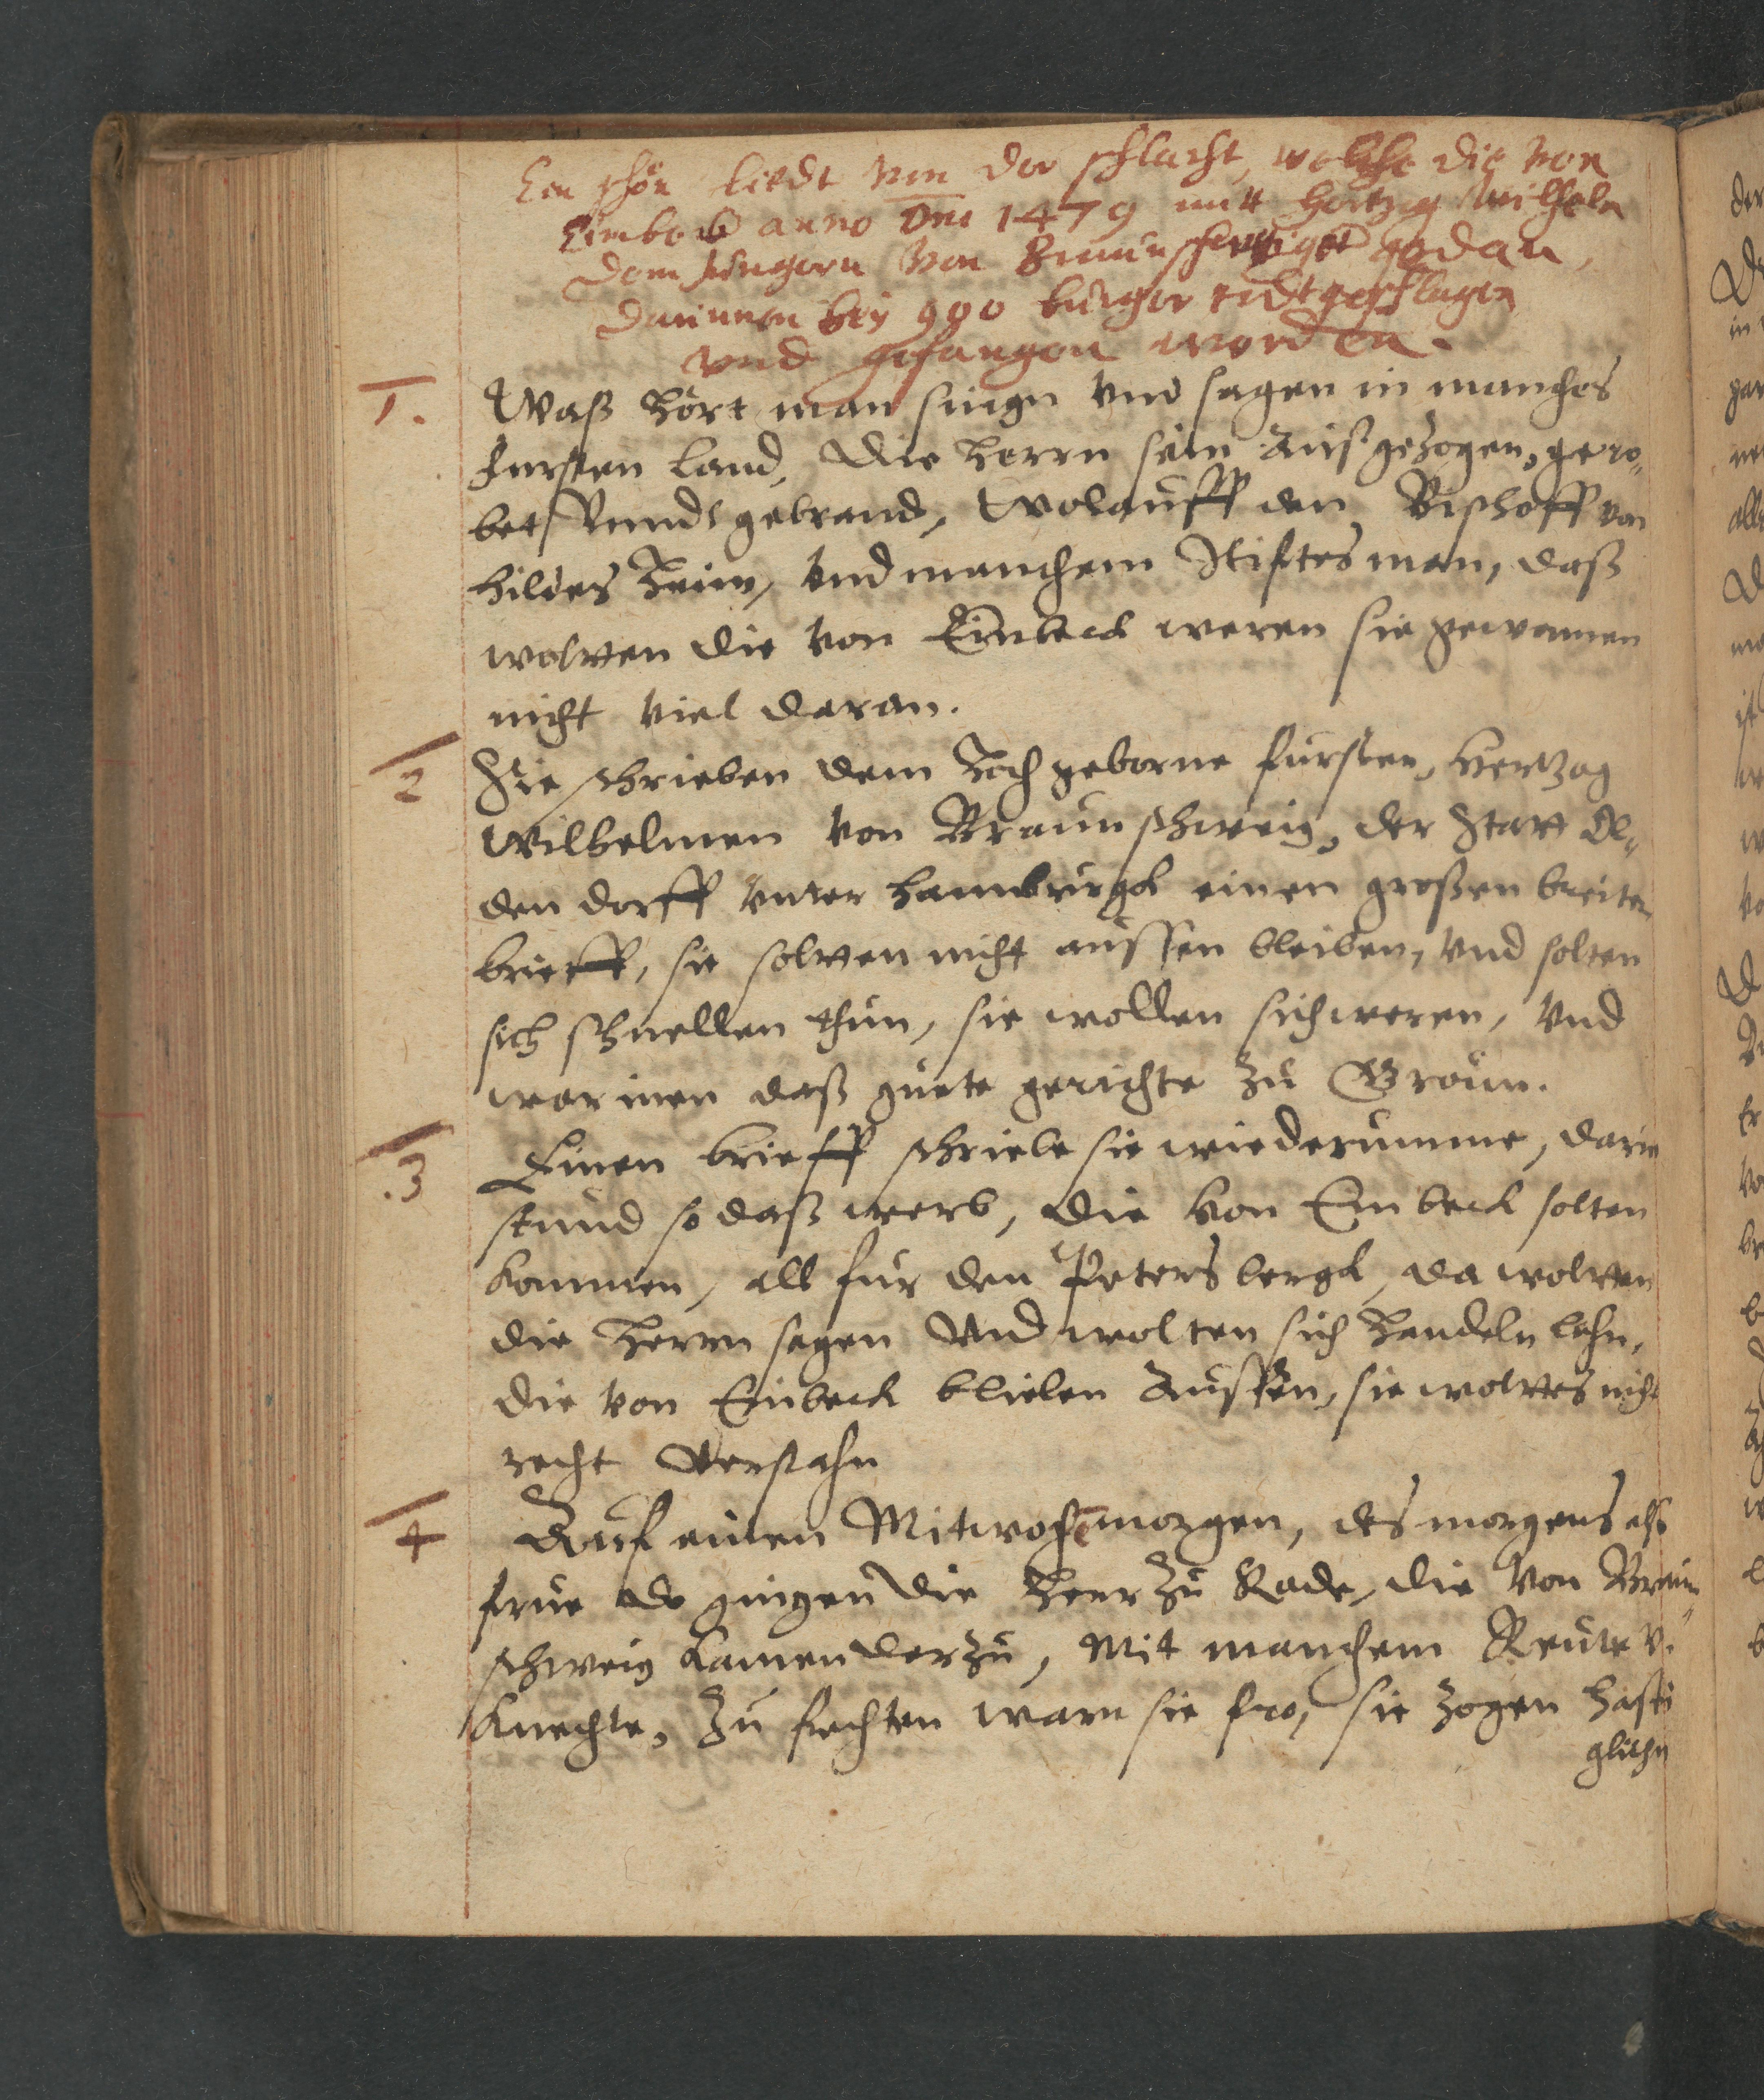 Ein schön liedt von der schlacht, welche die von
Eimbeck anno Dni 1479 mitt Hertzog Wilhelm
dem Jungern von Braunschweigk gedan,
darinnen bey 900 burger todtgeschlagen
vnd gefangen worden.
1. Waß hört man singn vnd sagen in manches
fursten land, die herrn sein außgezogen, gero„
bet vnnd gebrand, Wolauff den Bischoff von
hildesheim, vnd manchem Stiftes man, daß
wolten die von Einbeck weren sie gewonnen
nicht viel daran.
2 Sie schrieben dem hochgeborne fursten, Hertzog
Wilhelmen von Braunschweig, der Statt Ol„
dendorff vnter Hamburgk einen großen breiten
brieff, sie solten nicht aussen bleiben, vnd solten
sich schnellen thun, sie wollen sich weren, vnd
war inen daß guete gerichte zu
.3 Einen brieff schriebe sie wiederumme, darin
stund so daß werb, die von Einbeck solten
kommen, all fur den Petersbergk, da wolten
die Herrn sagen vnd wolten sich handeln lahn,
die von Einbeck blieben aussen, sie woltes nicht
recht verstahn
4 Auf einen Mitwochēmorgen, des morgens also
frue do gingen die Herr zu Rade, die von Braun„
schweig kamen darzu, Mit manchem Reuter v.
Knechte, zu fechten warn sie fro, sie zogen hasti
glichn